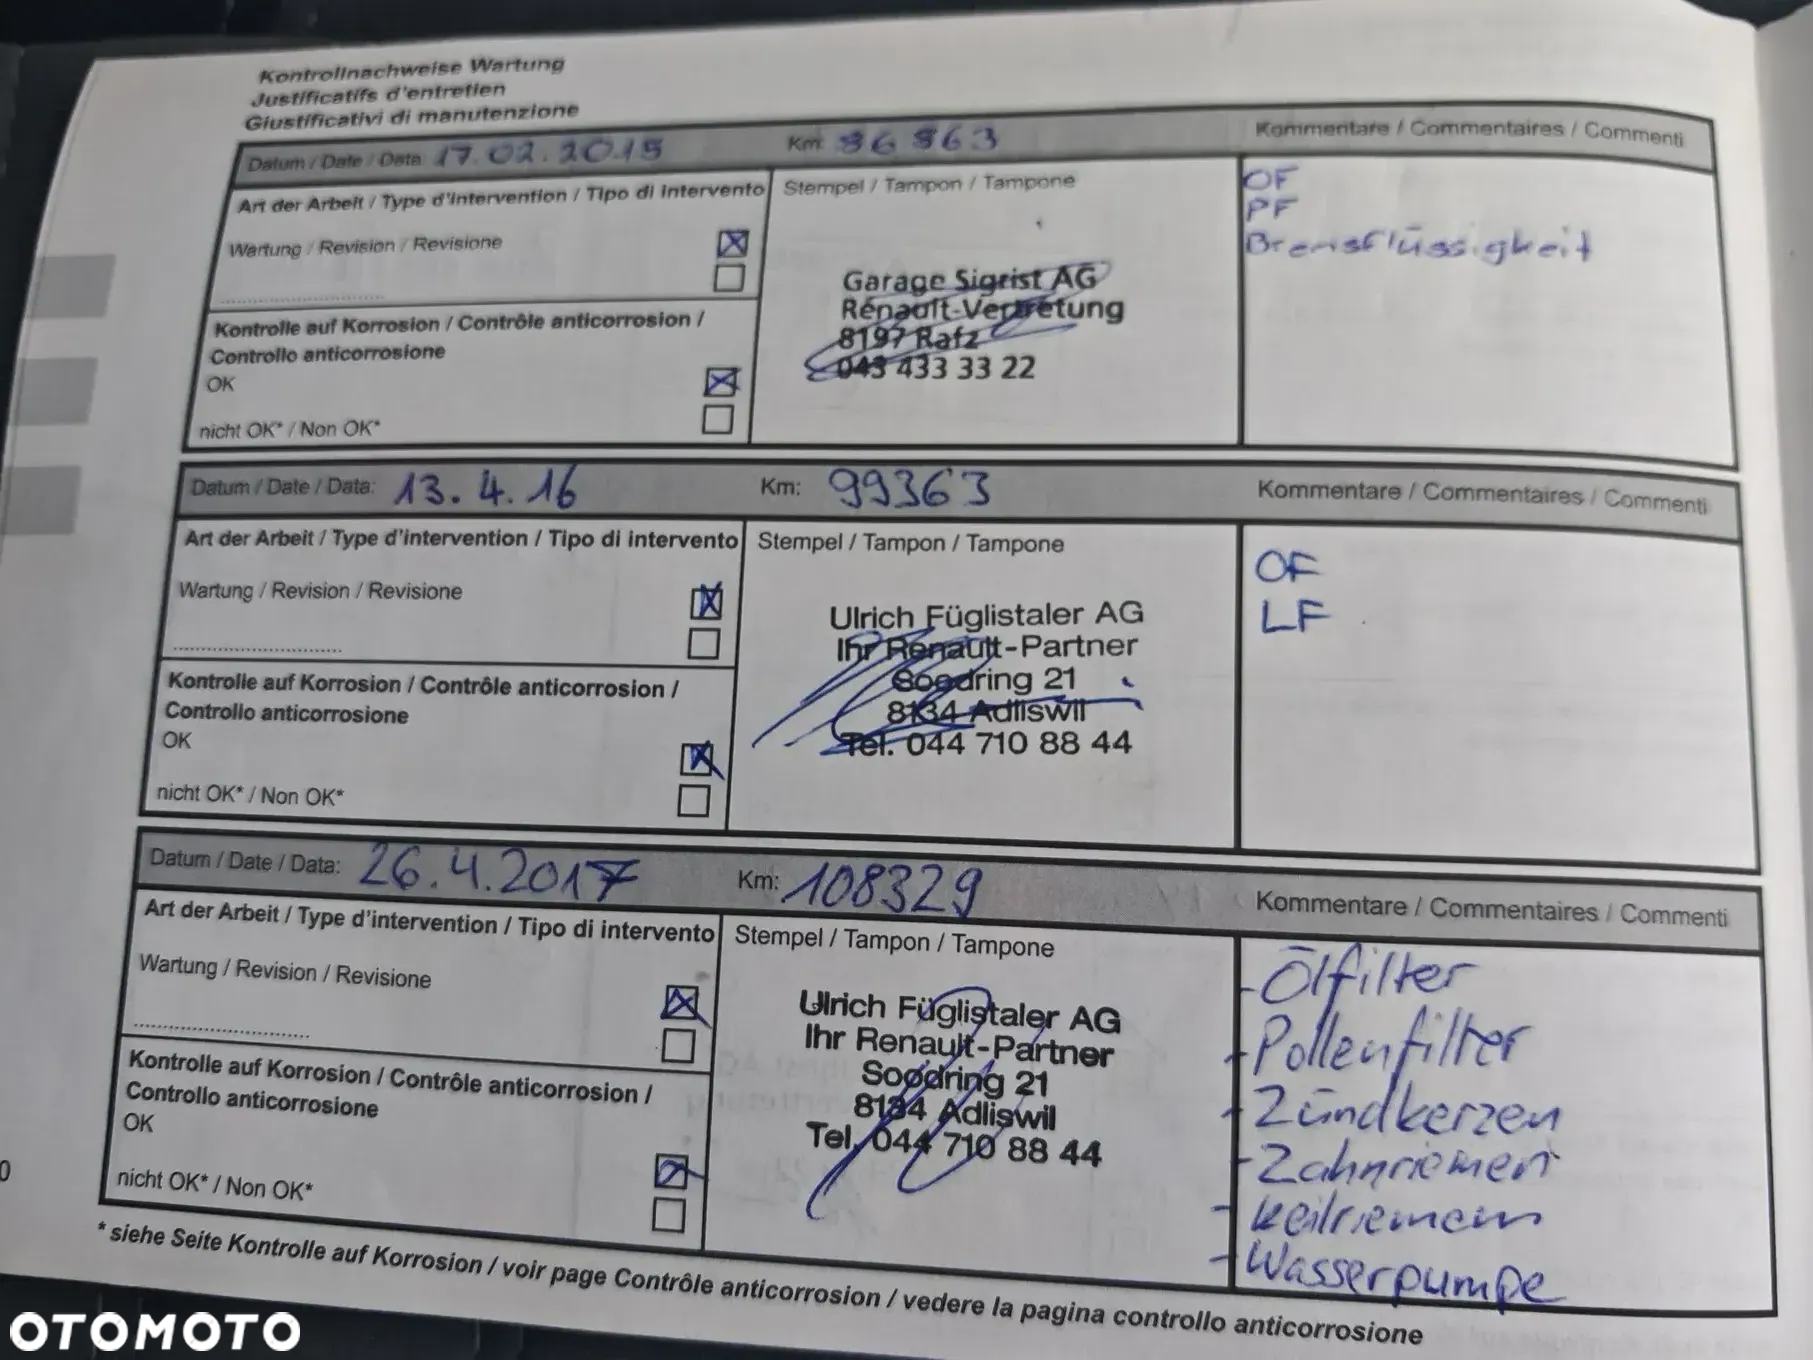 Kontrollnachweise Wartung
Justificatifs d'entretien
Giustificativi di manutenzione
Datum / Date / Data: 17.02.2015 Km: 86 863 Kommentare / Commentaires / Commenti
Art der Arbeit / Type d'intervention / Tipo di intervento
Stempel / Tampon / Tampone
OF
PF
Bremsflüssigkeit
Wartung / Revision / Revisione
Garage Sigrist AG
Renault-Vertretung
8197 Rafz
043 433 33 22
Kontrolle auf Korrosion / Contrôle anticorrosion /
Controllo anticorrosione
OK
nicht OK* / Non OK*
Datum / Date / Data: 13.4.16 Km: 99363 Kommentare / Commentaires / Commenti
Art der Arbeit / Type d'intervention / Tipo di intervento
Stempel / Tampon / Tampone
OF
LF
Wartung / Revision / Revisione
Ulrich Füglistaler AG
Ihr Renault-Partner
Soodring 21
8134 Adliswil
Tel. 044 710 88 44
Kontrolle auf Korrosion / Contrôle anticorrosion /
Controllo anticorrosione
OK
nicht OK* / Non OK*
Datum / Date / Data: 26.4.2017 Km: 108329 Kommentare / Commentaires / Commenti
Art der Arbeit / Type d'intervention / Tipo di intervento
Stempel / Tampon / Tampone
- Ölfilter
- Pollenfilter
- Zündkerzen
- Zahnriemen
- Keilriemen
- Wasserpumpe
Wartung / Revision / Revisione
Ulrich Füglistaler AG
Ihr Renault-Partner
Soodring 21
8134 Adliswil
Tel. 044 710 88 44
Kontrolle auf Korrosion / Contrôle anticorrosion /
Controllo anticorrosione
OK
nicht OK* / Non OK*
* siehe Seite Kontrolle auf Korrosion / voir page Contrôle anticorrosion / vedere la pagina controllo anticorrosione
OTOMOTO